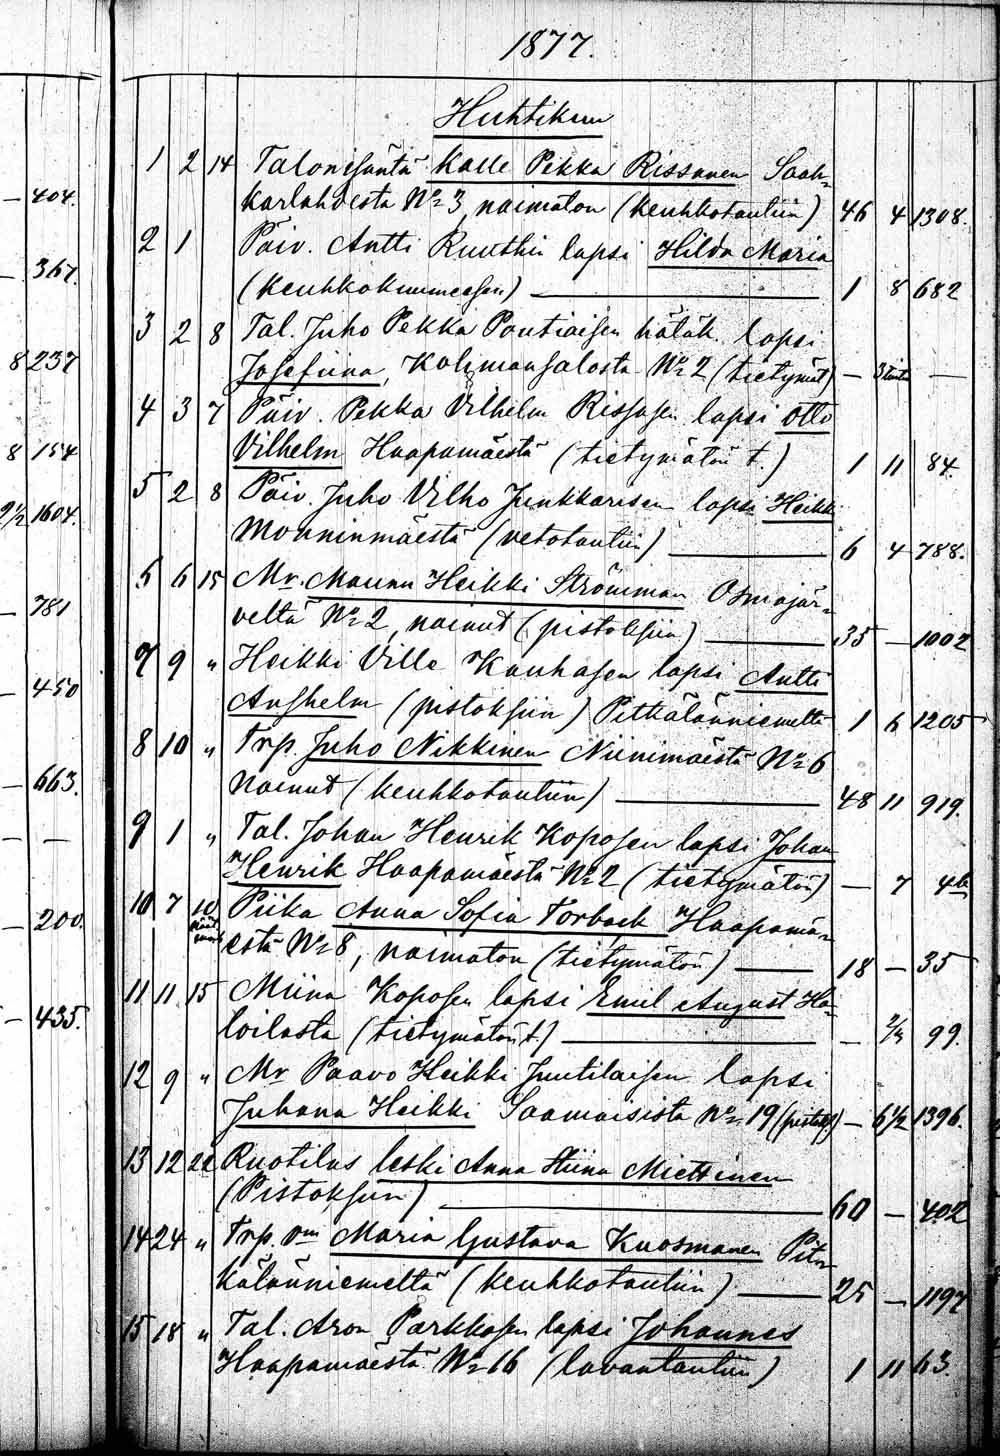 1877.
Huhtikuu
1 2 14 Talonisäntä Kalle Pekka Rissanen Saah-
404.
karlahdesta No 3, naimaton (keuhkotautiin) 46 4 1308.
2 1 Päiv. Antti Ruuthin lapsi Hilda Maria
367.
(keuhkokuumeesen) 1 8 682
3 2 8 Tal. Juho Pekka Pontiaisen hätäk. lapsi
8 237
Josefiina, Kolmansalosta No 2 (tietymät) — 3 —
4 3 7 Päiv. Pekka Vilhelm Rissasen lapsi Otto
8 154
Vilhelm Haapamäestä (tietymätön t.) 1 11 84.
5 2 8 Päiv. Juho Vilho Junkkarisen lapsi Heikki
9½ 1604.
Monninmäestä (vetotautiin) 6 4 788.
6 6 15 Mr. Maunu Heikki Strömman Osmajär-
781
veltä No 2, nainut (pistoksiin) 35 — 1002
7 9 " Heikki Ville Kauhasen lapsi Antti
450
Anshelm (pistoksiin) Pitkälänniemeltä 1 6 1205
8 10 " Trp. Juho Nikkinen Niinimäestä No 6
663.
nainut (keuhkotautiin) 48 11 919.
9 1 " Tal. Johan Henrik Koposen lapsi Johan
—
Henrik Haapamäestä No 2 (tietymätön) — 7 46
10 7 10 Piika Anna Sofia Torback Haapamä-
200.
estä No 8, naimaton (tietymätön) 18 — 35
11 11 15 Miina Koposen lapsi Emil August Ha-
435.
loilasta (tietymätön t.) — 99.
12 9 " Mr Paavo Heikki Juutilaisen lapsi
Juhana Heikki Saamaisista No 19 (pistoks) — 6½ 1396.
13 12 22 Ruotilas leski Anna Stiina Miettinen
(Pistoksiin) 60 — 402
14 24 " Trp. vm Maria Gustava Kuosmanen Pit-
kälänniemeltä (keuhkotautiin) 25 — 1197
15 18 " Tal. Aron Parkkosen lapsi Johannes
Haapamäestä No 16 (lavantautiin) 1 11 63.